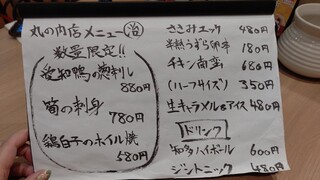 丸の内店メニュー
数量限定!!
愛知鴨の葱刺し
880円
筍の刺身
780円
鶏白子のホイル焼
580円
ささみユッケ 480円
半熟うずら卵串 180円
チキン南蛮 680円
(ハーフサイズ) 350円
生キャラメルのアイス 480円
ドリンク
知多ハイボール 600円
ジントニック 480円